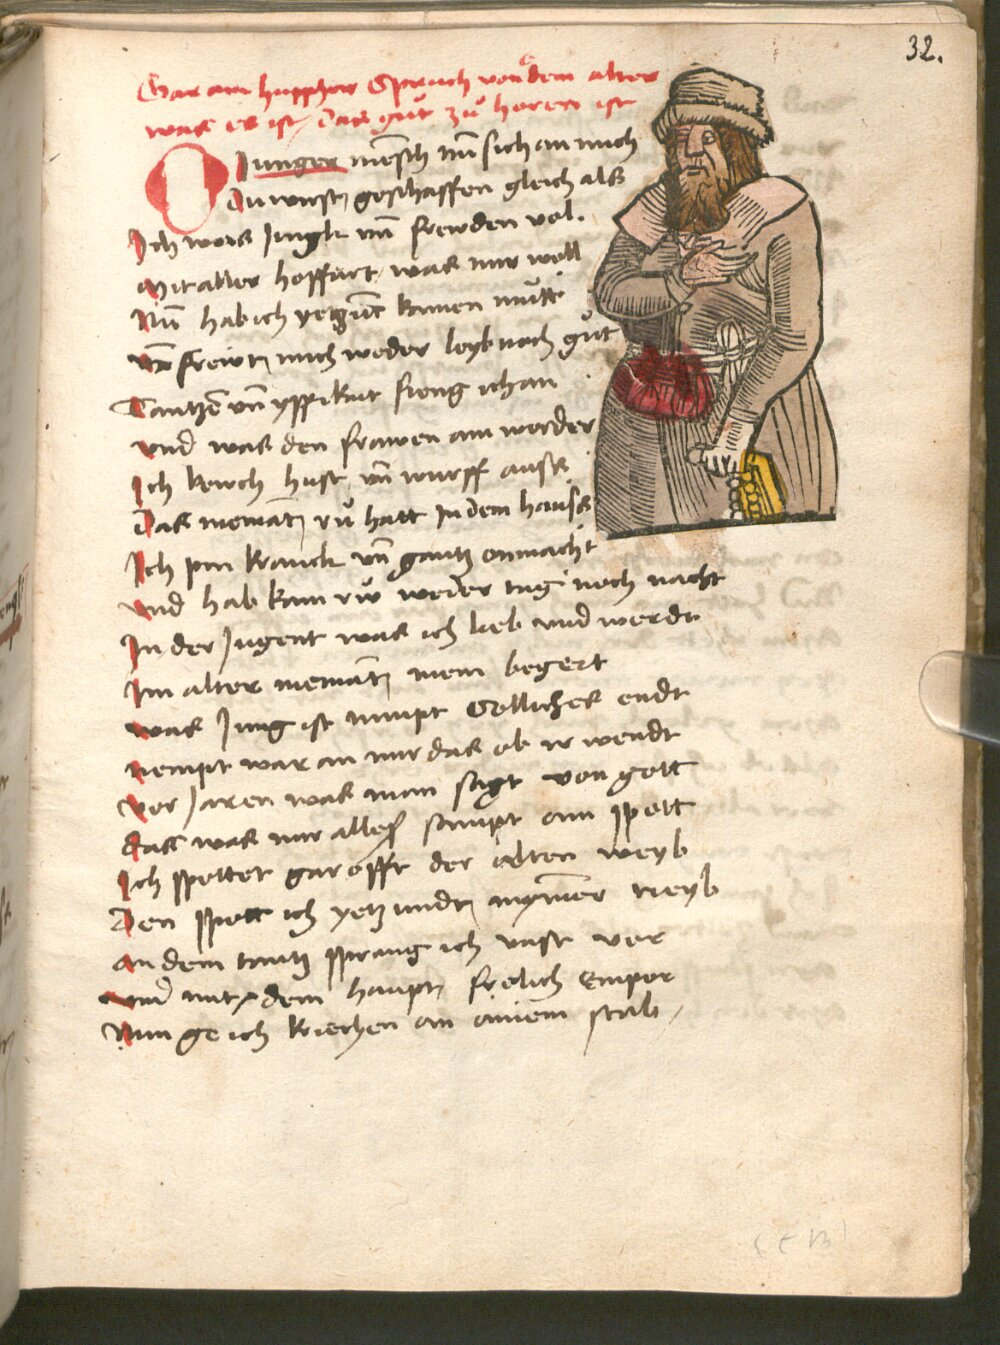 32.
Gar ain hupscher Spruch von dem alter
was es ist / das gůt zů horen ist
O Junger mensch nũ sich an mich
Du wirst geschaffen gleich als
Ich wors Jungk vñ frewden vol.
Mit aller hoffart was mir woll
Nũ hab ich yetzũt kainen mũtt
vñ frewt mich weder leyb noch gůt
Tantzẽ vñ yppikait fieng ich an
vnd was den frawen ain werder
Ich keich hust vñ wurff auss
Das niemātz rů hatt In dem hauss
Ich pin kranck vñ gantz onmacht
vnd hab kain rw weder tag noch nacht
In der Jugent was ich lieb vnd werdt
Im alter niemātz mein begert
was Jung ist nimpt Ellichs endt
nempt war an mir das ob ir wendt
vor Jaren was man sagt von gott
das was mir alles sampt ain spott
Ich spottet gar offt der alten weyb
Den spott ich yetzundt mymer treyb
an dem tantz sprang ich vast vor
vnd mit dem haupt frolich Empor
Nun ge ich kriechen an ainem stab /